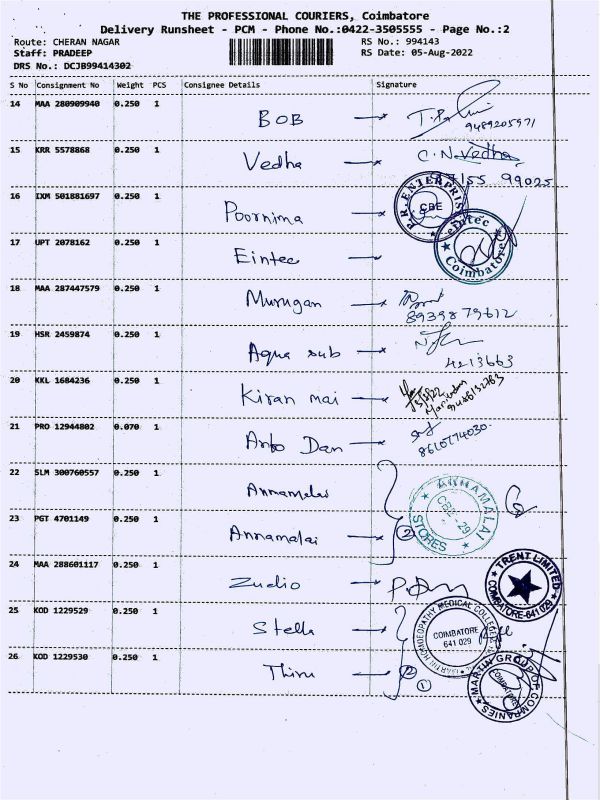 THE PROFESSIONAL COURIERS, Coimbatore
Delivery Runsheet - PCM - Phone No.:0422-3505555 - Page No.:2
Route: CHERAN NAGAR RS No.: 994143
Staff: PRADEEP RS Date: 05-Aug-2022
DRS No.: DCJB99414302
S No Consignment No Weight PCS Consignee Details Signature
14 MAA 280909940 0.250 1 BOB
9489205971
15 KRR 5578868 0.250 1 Vedha C.N.Vedha
97155 99025
16 IXM 501881697 0.250 1 Poornima P.R.ENTERPRISE CBE
17 UPT 2078162 0.250 1 Eintec eintec Coimbatore
18 MAA 287447579 0.250 1 Murugan
8939879612
19 HSR 2459874 0.250 1 Aqua sub
4213663
20 KKL 1684236 0.250 1 Kiran mai
21 PRO 12944802 0.070 1 Anto Dan
8610774030
22 SLM 300760557 0.250 1 Annamalai ANNAMALAI STORES CBE - 29
23 PGT 4701149 0.250 1 Annamalai 2
24 MAA 288601117 0.250 1 Zudio TRENT LIMITED COIMBATORE-641 029
25 KOD 1229529 0.250 1 Stella MARTIN HOMOEOPATHY MEDICAL COLLEGE COIMBATORE 641 029
26 KOD 1229530 0.250 1 Thiru 2 1 MARTIN GROUP OF COMPANIES COIMBATORE